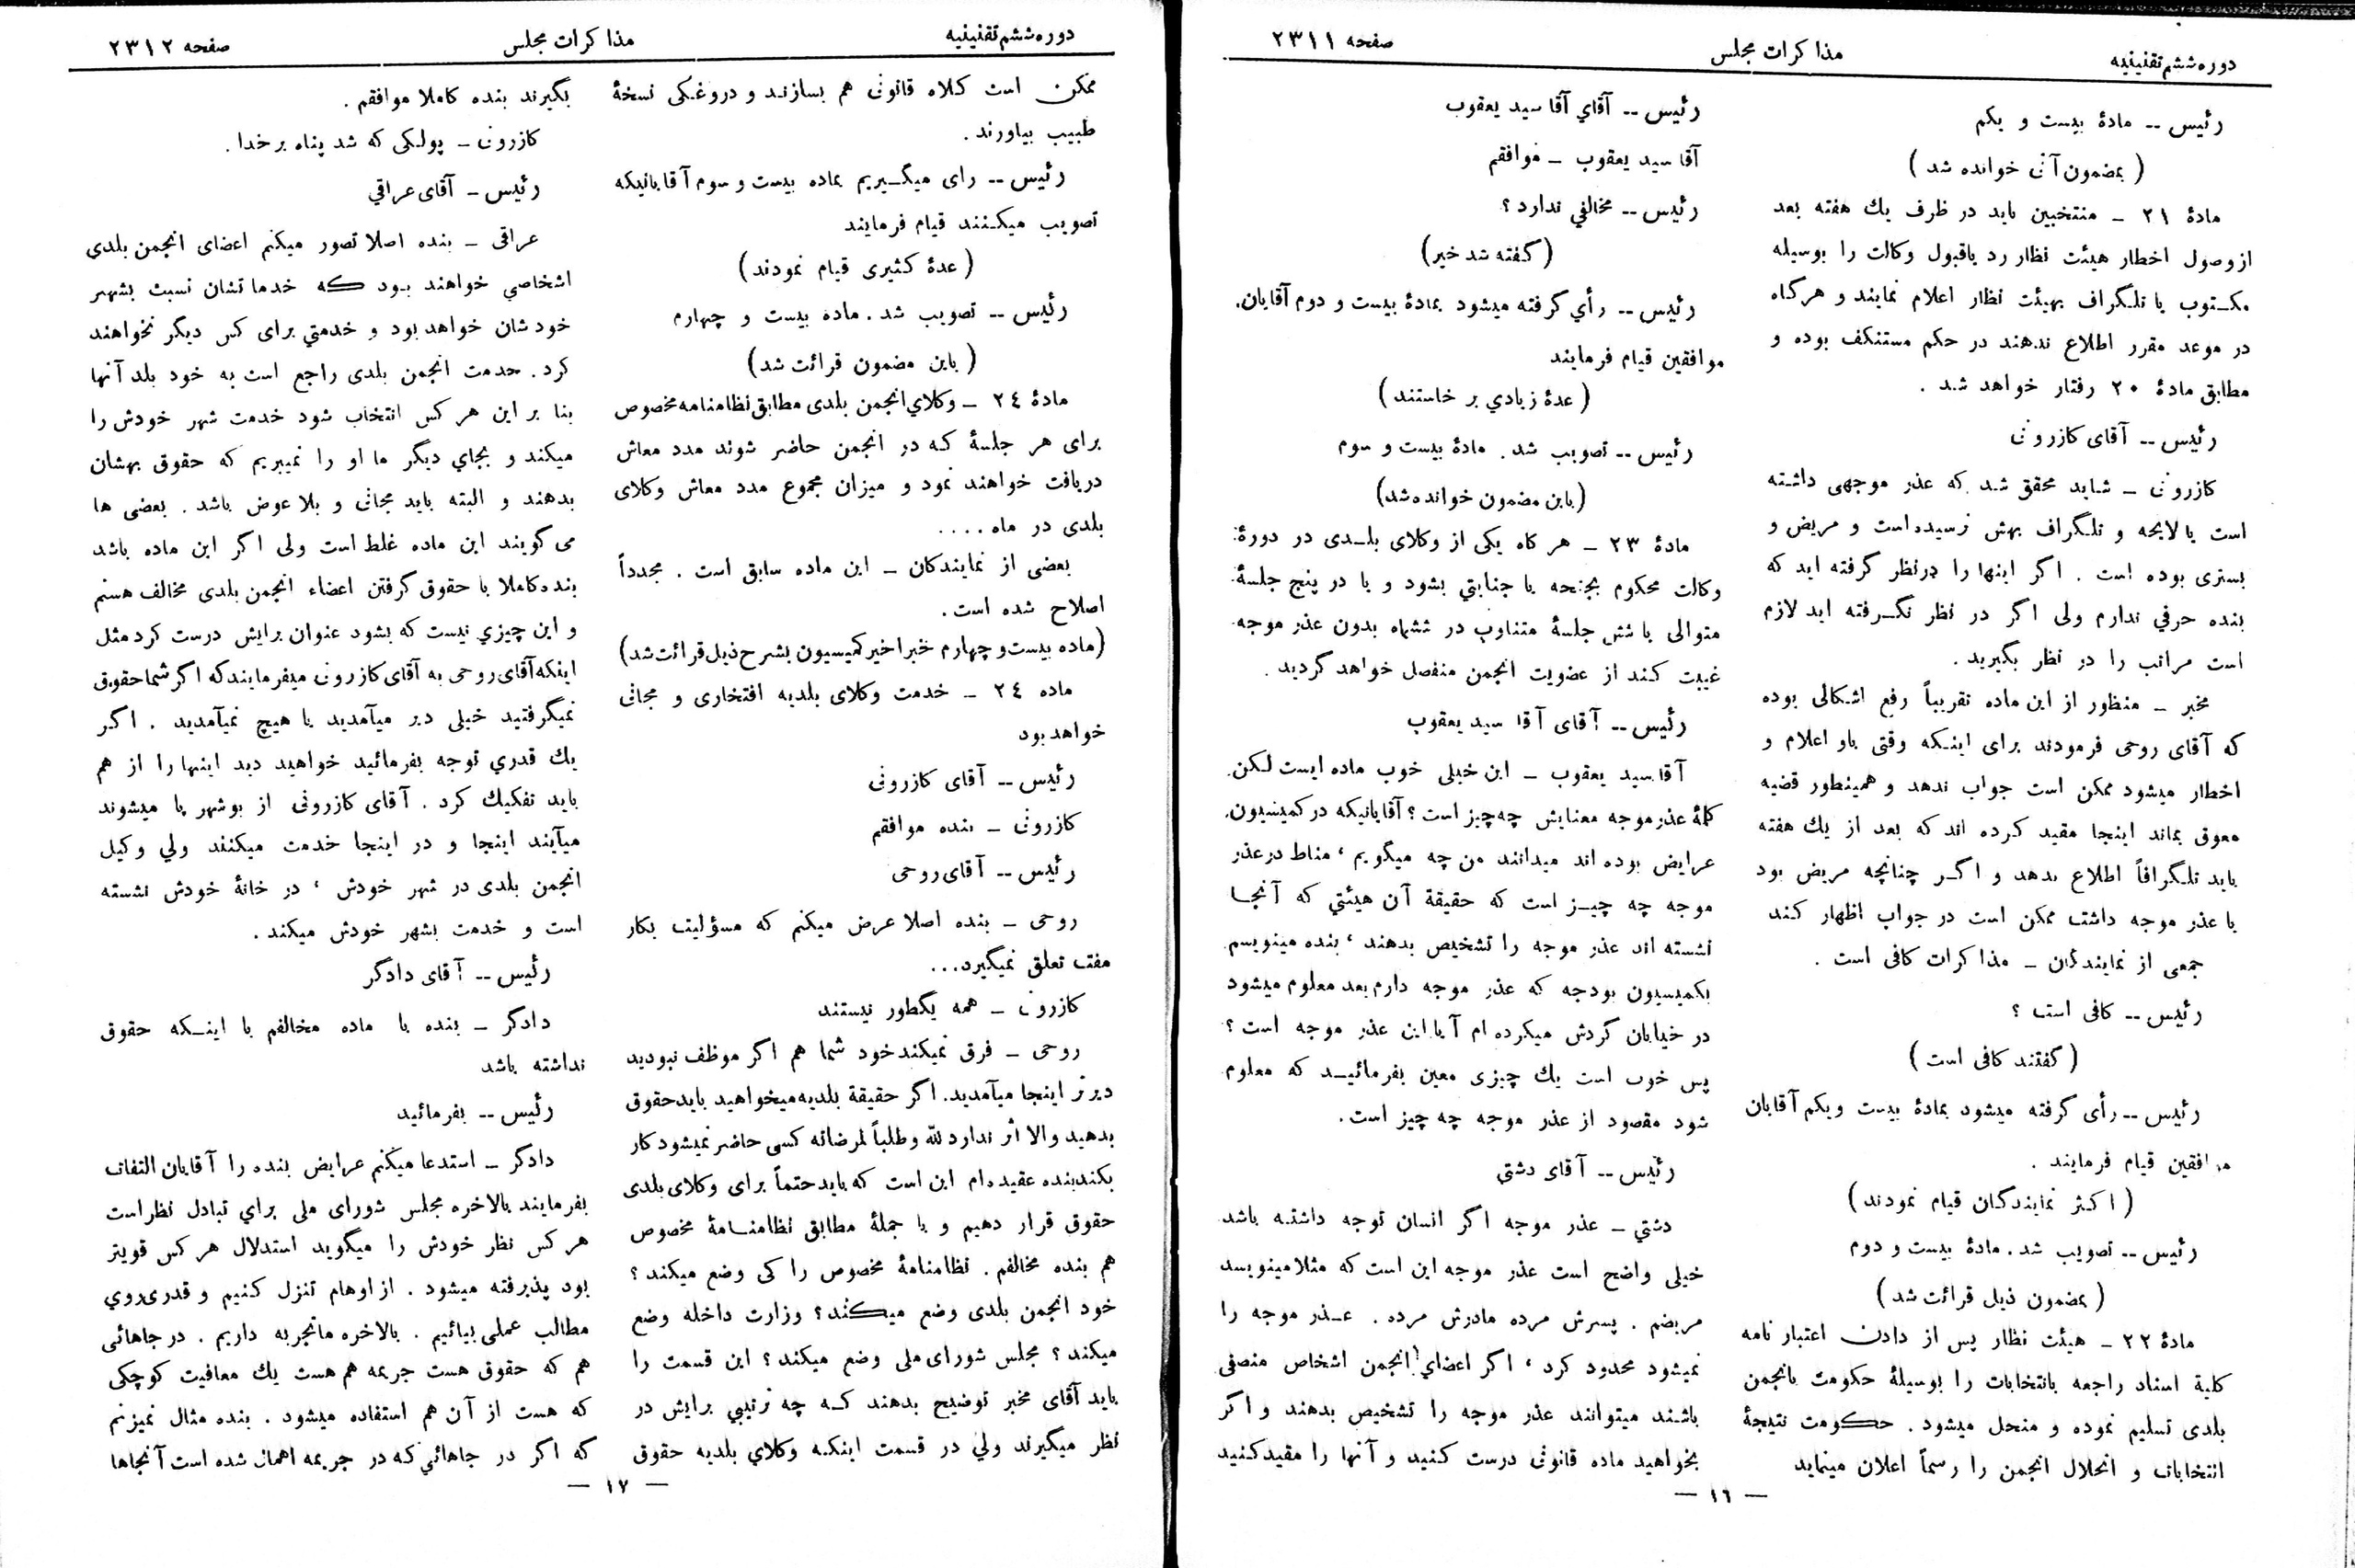 دوره ششم تقنینیه
مذاکرات مجلس
صفحه ۲۳۱۱
رئیس -- مادهٔ بیست و یکم
( بمضمون آتی خوانده شد )
مادهٔ ۲۱ - منتخبین باید در ظرف یك هفته بعد
از وصول اخطار هیئت نظار رد یا قبول وکالت را بوسیله
مکتوب یا تلگراف بهیئت نظار اعلام نمایند و هرگاه
در موعد مقرر اطلاع ندهند در حکم مستنکف بوده و
مطابق مادهٔ ۲۰ رفتار خواهد شد .
رئیس -- آقای کازرونی
کازرونی - شاید محقق شد که عذر موجهی داشته
است یا لایحه و تلگراف بهش نرسیده است و مریض و
بستری بوده است . اگر اینها را درنظر گرفته اید که
بنده حرفي ندارم ولی اگر در نظر نگرفته اید لازم
است مراتب را در نظر بگیرید .
مخبر - منظور از این ماده تقریباً رفع اشکالی بوده
که آقای روحی فرمودند برای اینکه وقتی باو اعلام و
اخطار میشود ممکن است جواب ندهد و همینطور قضیه
معوق بماند اینجا مقید کرده اند که بعد از یك هفته
باید تلگرافاً اطلاع بدهد و اگر چنانچه مریض بود
یا عذر موجه داشت ممکن است در جواب اظهار کند
جمعی از نمایندگان - مذاکرات کافی است .
رئیس -- کافی است ؟
( گفتند کافی است )
رئیس -- رأی گرفته میشود بمادهٔ بیست ویکم آقایان
موافقین قیام فرمایند .
( اکثر نمایندگان قیام نمودند )
رئیس -- تصویب شد . مادهٔ بیست و دوم
( بمضمون ذیل قرائت شد )
مادهٔ ۲۲ - هیئت نظار پس از دادن اعتبار نامه
کلیة اسناد راجعه بانتخابات را بوسیلهٔ حکومت بانجمن
بلدی تسلیم نموده و منحل میشود . حکومت نتیجهٔ
انتخابات و انحلال انجمن را رسماً اعلان مینماید
رئیس -- آقاي آقا سید یعقوب
آقا سید یعقوب - موافقم
رئیس -- مخالفي ندارد ؟
(گفته شد خیر)
رئیس -- رأي گرفته میشود بمادهٔ بیست و دوم آقایان.
موافقین قیام فرمایند
( عدهٔ زیادي بر خاستند )
رئیس -- تصویب شد . مادهٔ بیست و سوم
(باین مضمون خوانده شد)
مادهٔ ۲۳ - هر گاه یکی از وکلای بلدی در دورهٔ
وکالت محکوم بجنحه یا جنایتي بشود و یا در پنج جلسهٔ
متوالی یا شش جلسهٔ متناوب در ششماه بدون عذر موجه
غیبت کند از عضویت انجمن منفصل خواهد گردید .
رئیس -- آقای آقا سید یعقوب
آقا سید یعقوب - این خیلی خوب ماده ایست لکن
کلمهٔ عذر موجه معنایش چه چیز است ؟ آقایانیکه در کمیسیون
عرایض بوده اند میدانند من چه میگویم ، مناط در عذر
موجه چه چیز است که حقیقة آن هیئتي که آنجا
نشسته اند عذر موجه را تشخیص بدهند ، بنده مینویسم
بکمیسیون بودجه که عذر موجه دارم بعد معلوم میشود
در خیابان گردش میکرده ام آیا این عذر موجه است ؟
پس خوب است یك چیزی معین بفرمائید که معلوم
شود مقصود از عذر موجه چه چیز است .
رئیس -- آقای دشتي
دشتي - عذر موجه اگر انسان توجه داشته باشد
خیلی واضح است عذر موجه این است که مثلا مینویسد
مریضم . پسرش مرده مادرش مرده . عذر موجه را
نمیشود محدود کرد ، اگر اعضاي انجمن اشخاص منصفی
باشند میتوانند عذر موجه را تشخیص بدهند و اگر
بخواهید ماده قانونی درست کنید و آنها را مقید کنید
— ۱٦ —
دوره ششم تقنینیه
مذاکرات مجلس
صفحه ۲۳۱۲
ممکن است کلاه قانونی هم بسازند و دروغکی نسخهٔ
طبیب بیاورند .
رئیس -- رای میگیریم بماده بیست و سوم آقایانیکه
تصویب میکنند قیام فرمایند
( عدهٔ کثیری قیام نمودند )
رئیس -- تصویب شد . ماده بیست و چهارم
( باین مضمون قرائت شد )
مادهٔ ۲٤ - وکلاي انجمن بلدی مطابق نظامنامه مخصوص
برای هر جلسهٔ که در انجمن حاضر شوند مدد معاش
دریافت خواهند نمود و میزان مجموع مدد معاش وکلای
بلدی در ماه ....
بعضی از نمایندگان - این ماده سابق است . مجدداً
اصلاح شده است .
(ماده بیست و چهارم خبر اخیر کمیسیون بشرح ذیل قرائت شد)
ماده ۲٤ - خدمت وکلای بلدیه افتخاری و مجانی
خواهد بود
رئیس -- آقای کازرونی
کازرونی - بنده موافقم
رئیس -- آقای روحی
روحی - بنده اصلا عرض میکنم که مسؤلیت بکار
مفت تعلق نمیگیرد...
کازرونی - همه یکطور نیستند
روحی - فرق نمیکند خود شما هم اگر موظف نبودید
دیرتر اینجا میآمدید . اگر حقیقة بلدیه میخواهید باید حقوق
بدهید والا اثر ندارد لله وطلباً لمرضاته کسی حاضر نمیشود کار
بکند بنده عقیده ام این است که باید حتماً برای وکلای بلدی
حقوق قرار دهیم و با جملهٔ مطابق نظامنامهٔ مخصوص
هم بنده مخالفم . نظامنامهٔ مخصوص را کی وضع میکند ؟
خود انجمن بلدی وضع میکند ؟ وزارت داخله وضع
میکند ؟ مجلس شورای ملی وضع میکند ؟ این قسمت را
باید آقای مخبر توضیح بدهند که چه ترتیبي برایش در
نظر میگیرند ولي در قسمت اینکه وکلاي بلدیه حقوق
بگیرند بنده کاملا موافقم .
کازرونی - پولکی که شد پناه بر خدا .
رئیس - آقای عراقي
عراقی - بنده اصلا تصور میکنم اعضای انجمن بلدی
اشخاصي خواهند بود که خدماتشان نسبت بشهر
خودشان خواهد بود و خدمتي برای کس دیگر نخواهند
کرد . خدمت انجمن بلدی راجع است به خود بلد آنها
بنا بر این هر کس انتخاب شود خدمت شهر خودش را
میکند و بجاي دیگر ما او را نمیبریم که حقوق بهشان
بدهند و البته باید مجانی و بلا عوض باشد . بعضی ها
می گویند این ماده غلط است ولی اگر این ماده باشد
بنده کاملا با حقوق گرفتن اعضاء انجمن بلدی مخالف هستم
و این چیزي نیست که بشود عنوان برایش درست کرد مثل
اینکه آقای روحی به آقای کازرونی میفرمایند که اگر شما حقوق
نمیگرفتید خیلی دیر میآمدید یا هیچ نمیآمدید . اگر
یك قدري توجه بفرمائید خواهید دید اینها را از هم
باید تفکیك کرد . آقای کازرونی از بوشهر پا میشوند
میآیند اینجا و در اینجا خدمت میکنند ولي وکیل
انجمن بلدی در شهر خودش ، در خانهٔ خودش نشسته
است و خدمت بشهر خودش میکند .
رئیس -- آقای دادگر
دادگر - بنده با ماده مخالفم با اینکه حقوق
نداشته باشد
رئیس -- بفرمائید
دادگر - استدعا میکنم عرایض بنده را آقایان التفات
بفرمایند بالاخره مجلس شورای ملی براي تبادل نظر است
هر کس نظر خودش را میگوید استدلال هر کس قویتر
بود پذیرفته میشود . از اوهام تنزل کنیم و قدری روي
مطالب عملی بیائیم . بالاخره ما تجربه داریم . در جاهائی
هم که حقوق هست جریمه هم هست یك معافیت کوچکی
که هست از آن هم استفاده میشود . بنده مثال نمیزنم
که اگر در جاهائي که در جریمه اهمال شده است آنجاها
— ۱۷ —